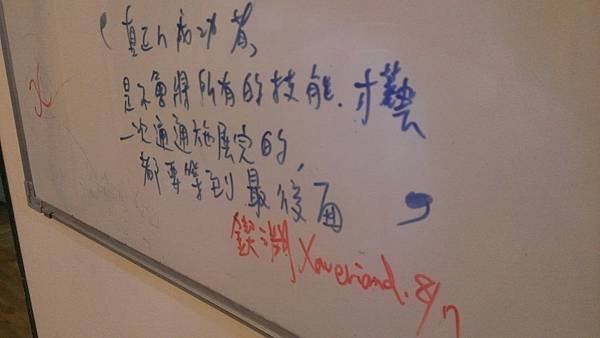 「真正的成功者,
是不會將所有的技能、才藝
一次通通施展完的,
都要等到最後面」
8/7